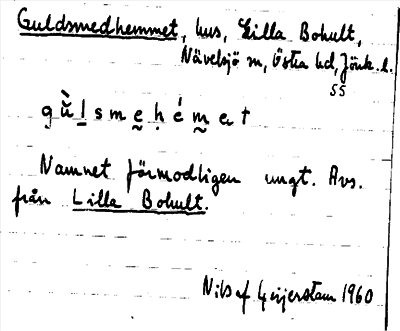 Guldsmedhemmet, hus, Lilla Bohult,
Nävelsjö sn, Östra hd, Jönk. l.
55
gù̆l̲sme̮ḥém̮et
Namnet förmodligen ungt. Avs.
från Lilla Bohult.
Nils af Geijerstam 1960